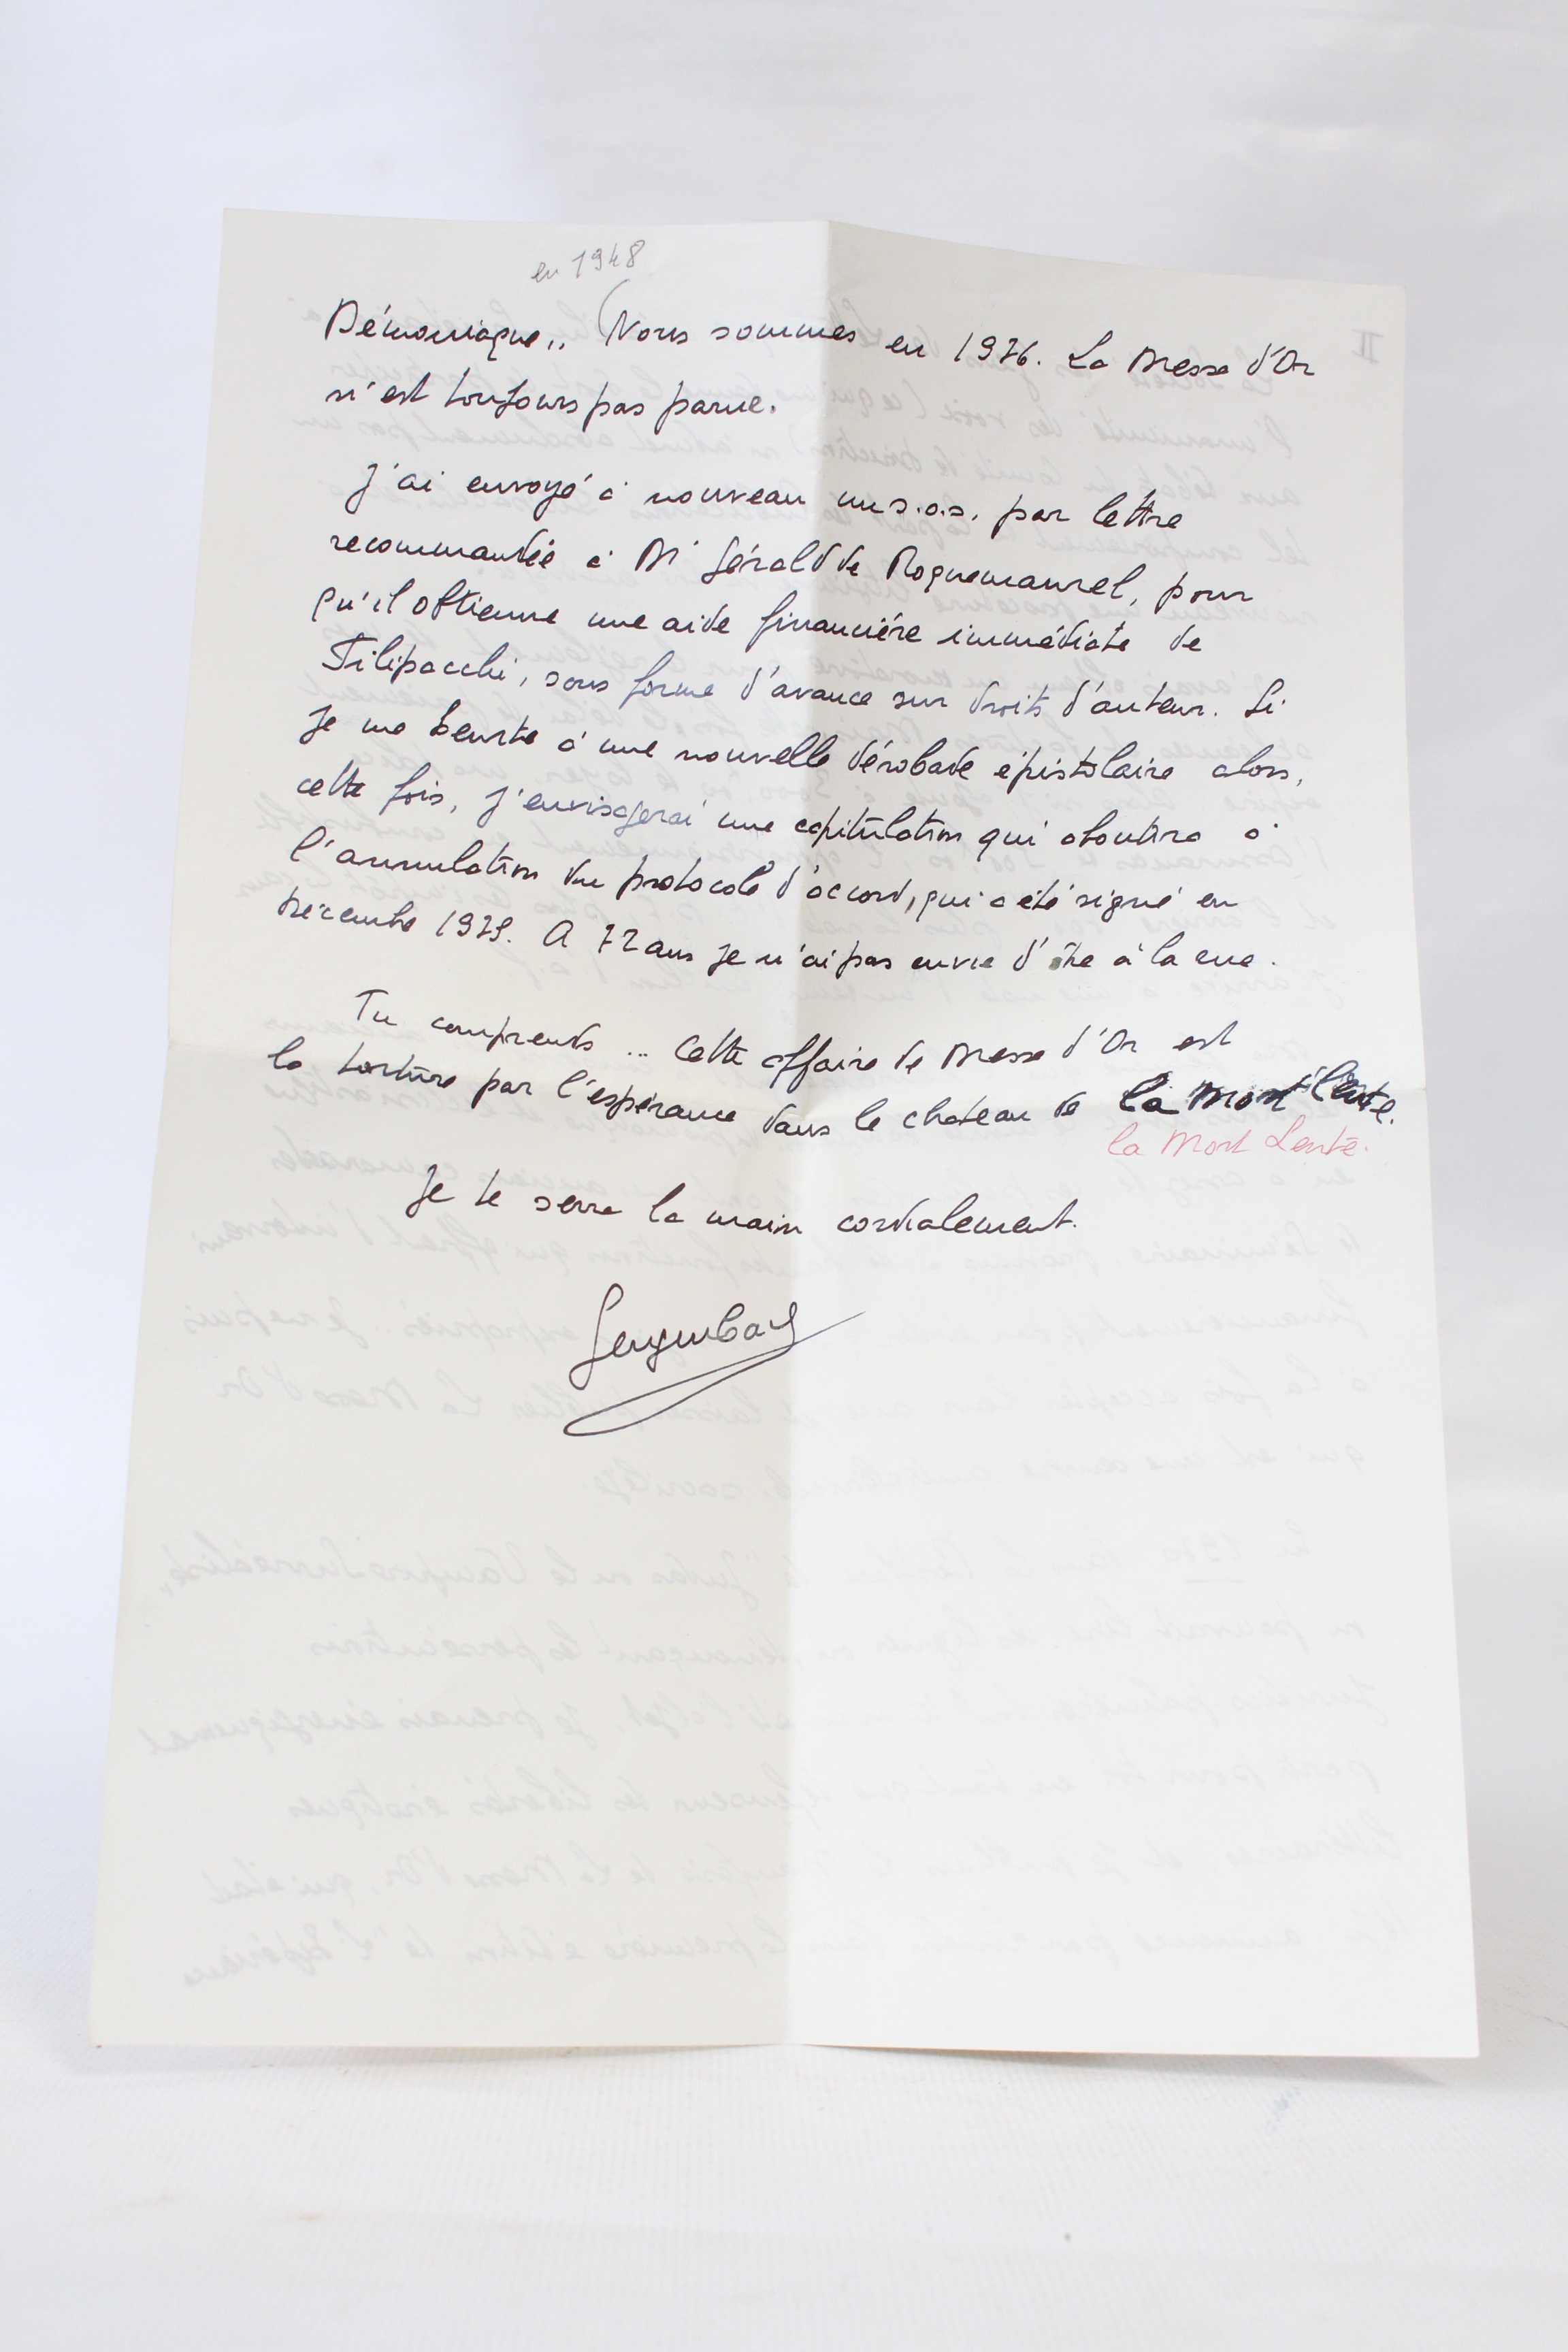 en 1948
Démoniaque,, (Nous sommes en 1976. La Messe d'Or
n'est toujours pas parue.
J'ai envoyé à nouveau un s.o.s. par lettre
recommandée à Mr Gérald de Roquemaurel, pour
qu'il obtienne une aide financière immédiate de
Filipacchi, sous forme d'avance sur droits d'auteur. Si
je me heurte à une nouvelle dérobade épistolaire alors,
cette fois, j'envisagerai une capitulation qui aboutira à
l'annulation du protocole d'accord, qui a été signé en
Décembre A 72 ans je n'ai pas envie d'être à la rue.
Tu comprends ... Cette affaire de Messe d'Or est
la torture par l'espérance dans le chateau de la Mort lente.
la Mort Lente.
Je te serre la main cordialement.
Gengenbach
II